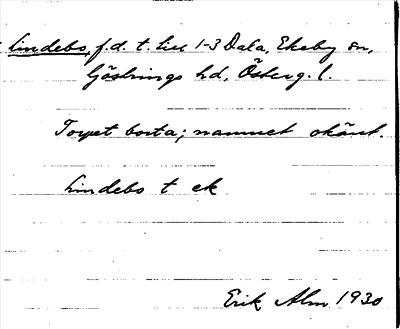 Lindebo, f.d. t. till 1-3 Dala, Ekeby sn,
Göstrings hd, Österg. l.
Torpet borta; namnet okänt.
Lindebo t ek
Erik Alm 1930